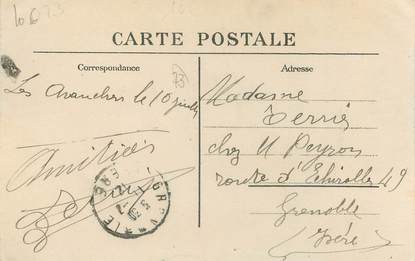 CARTE POSTALE
Correspondance
Adresse
Les Avanchers le 10 juillet
Amitiés
Madame
Terrier
chez M Peyron
route d'Echirolles 49
Grenoble
Isère